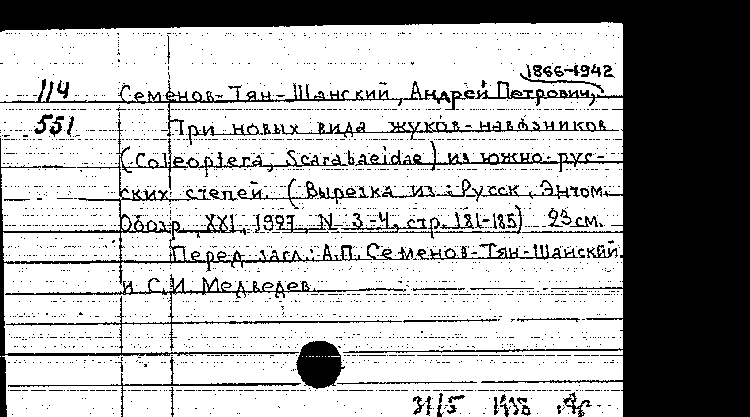 1866-1942
114 Семенов-Тян-Шанский, Андрей Петрович,
551 Три новых вида жуков-навозников
(Coleoptera, Scarabaeidae) из южно-рус-
ских степей. (Вырезка из: Русск. Энтом.
Обозр., XXI, 1927, N 3-4, стр. 181-185) 23 см.
Перед загл.: А.П. Семенов-Тян-Шанский
и С.И. Медведев.
31/5 1938